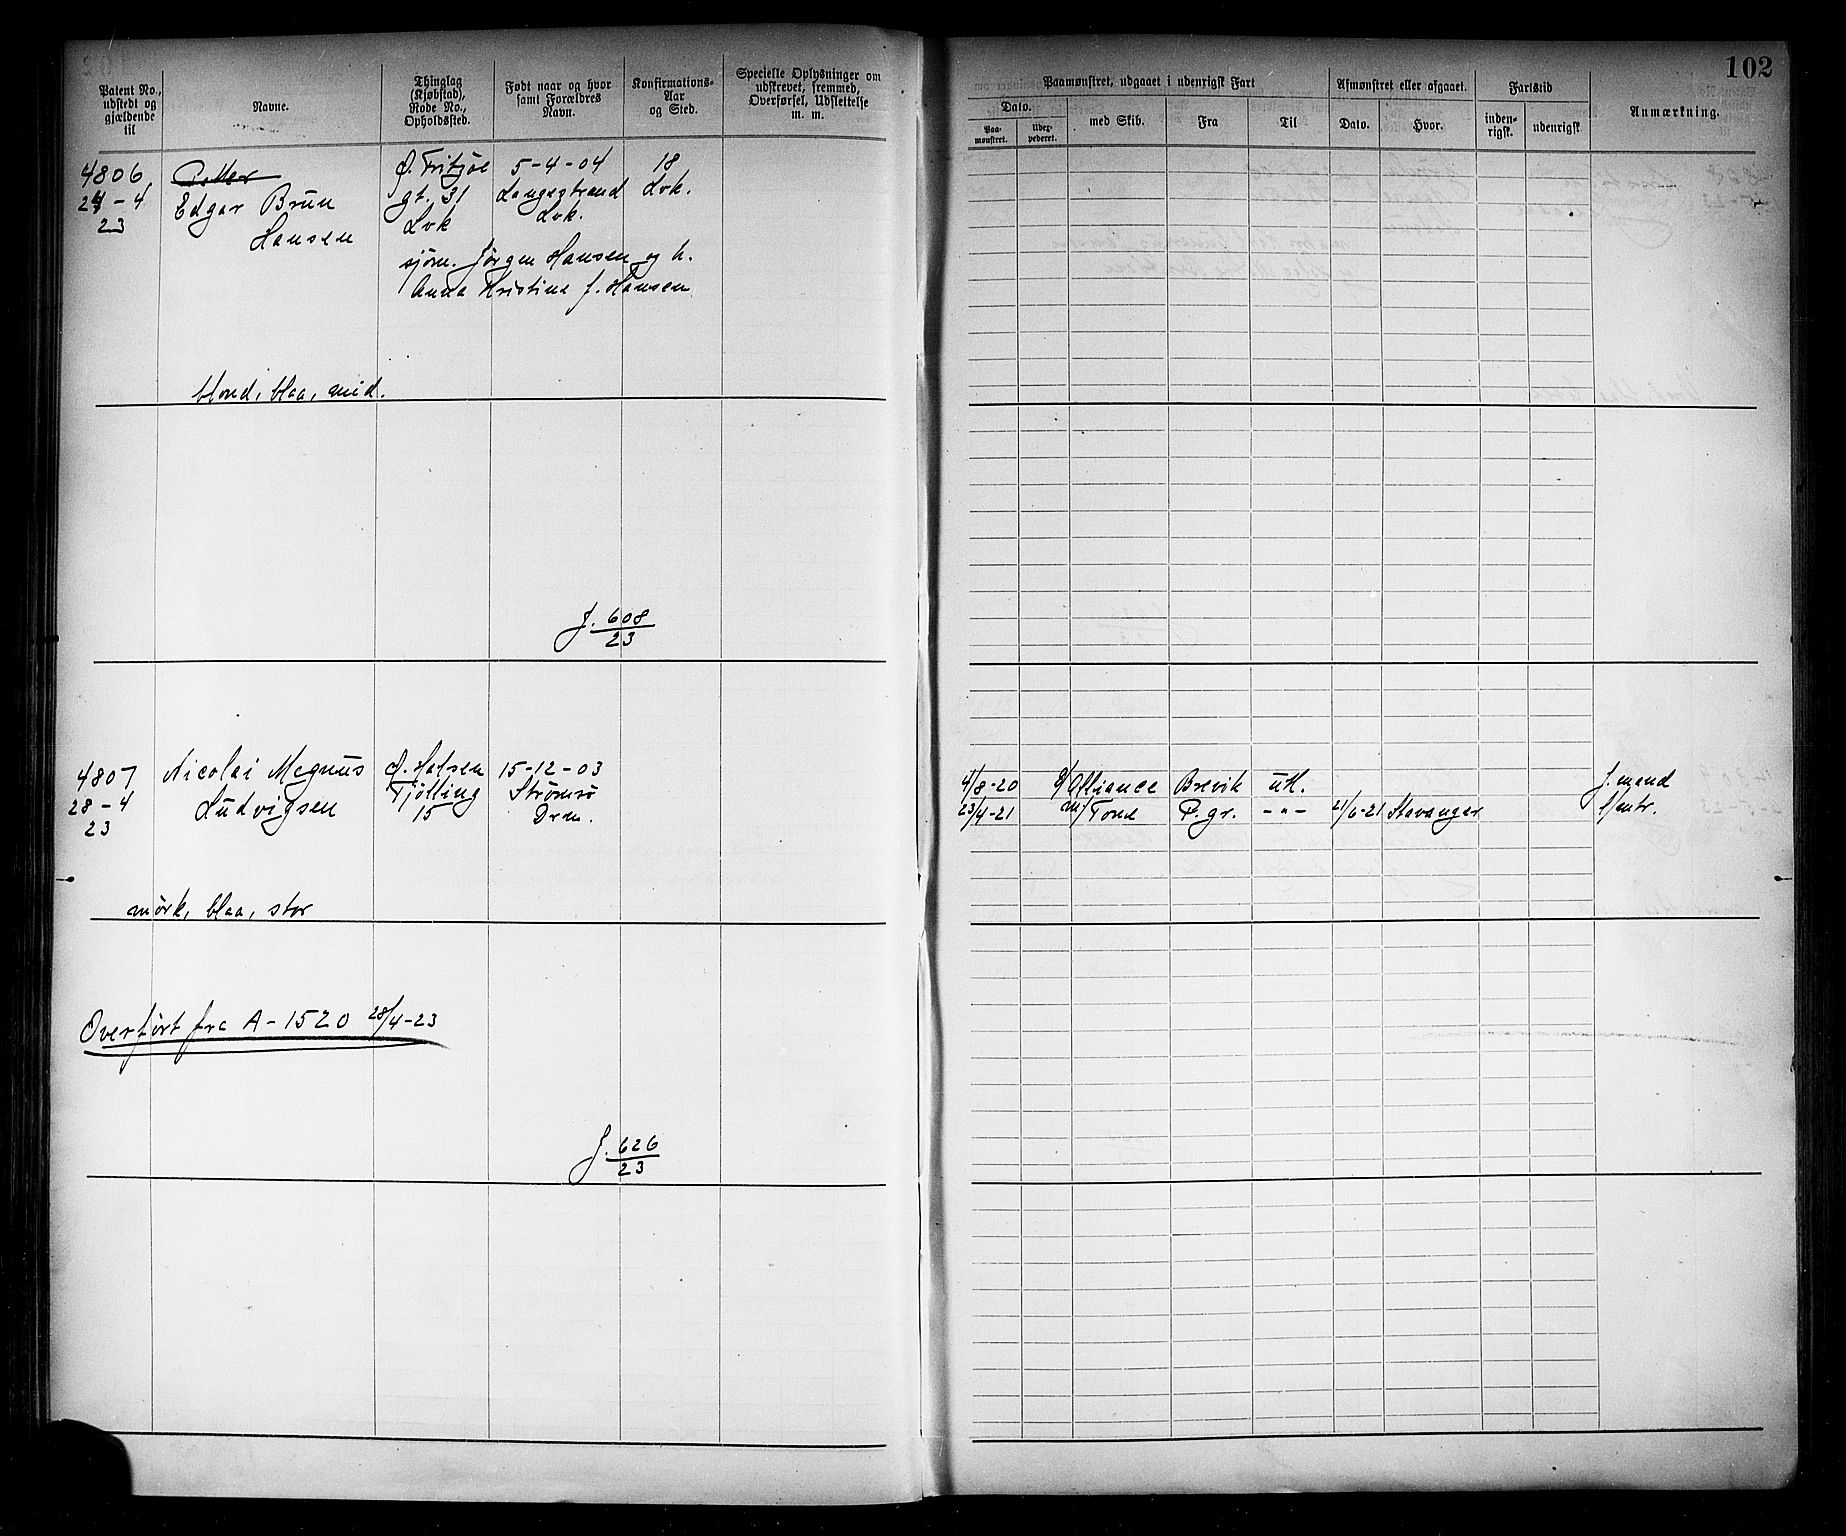 Patent No., udstedt og gjældende til
Navne.
Thinglag (Kjøbstad), Rode No., Opholdssted.
Født naar og hvor samt Forældres Navn.
Konfirmations-Aar og Sted.
Specielle Oplysninger om udskrevet, fremmed, Overførsel, Udslettelse m. m.
4806
24-4
23
Edgar Brun
Hansen
Ø. Fritzøe
gt. 31
Lvk
5-4-04
Langestrand
Lvk.
18
Lvk.
sjøm. Jørgen Hansen og h.
Anna Kristine f. Hansen
blond, blaa, mid.
J. 608
23
4807
28-4
23
Nicolai Magnus
Ludvigsen
Ø. Halsen
Tjølling
15
15-12-03
Strømsø
Drm.
mørk, blaa, stor
Overført fra A-1520 28/4-23
J. 626
23
102
Paamønstret, udgaaet i udenrigsk Fart
Afmønstret eller afgaaet.
Fartstid
Anmærkning.
Dato.
Paa-mønstret.
Udex-pederet.
med Skib.
Fra
Til
Dato.
Hvor.
inden-rigsk.
udenrigsk
4/8-20 Alliance Brevik utl. J.mand
23/4-21 m/ Tone P.gr. -"- 21/6-21 Stavanger l/mtr.